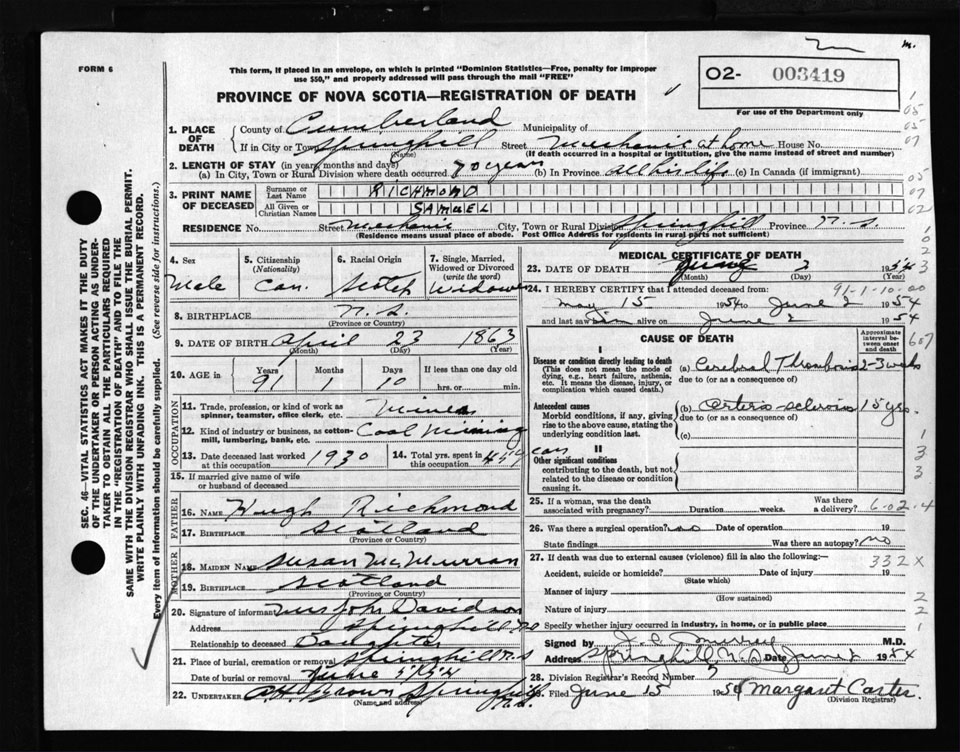 m.
FORM 6
This form, if placed in an envelope, on which is printed "Dominion Statistics—Free, penalty for improper
use $50," and properly addressed will pass through the mail "FREE"
O2- 003419
For use of the Department only
PROVINCE OF NOVA SCOTIA—REGISTRATION OF DEATH
1. PLACE OF DEATH
County of Cumberland Municipality of
If in City or Town Springhill Street Mechanic at home House No.
(Name) (If death occurred in a hospital or institution, give the name instead of street and number)
2. LENGTH OF STAY (in years, months and days)
(a) In City, Town or Rural Division where death occurred 70 years (b) In Province all his life (c) In Canada (if immigrant)
3. PRINT NAME OF DECEASED
Surname or Last Name RICHMOND
All Given or Christian Names SAMUEL
RESIDENCE No. Street Mechanic City, Town or Rural Division Springhill Province N.S.
(Residence means usual place of abode. Post Office Address for residents in rural parts not sufficient)
4. Sex
Male
5. Citizenship
(Nationality)
Can.
6. Racial Origin
Scotch
7. Single, Married,
Widowed or Divorced
(write the word)
Widower
8. BIRTHPLACE N.S.
(Province or Country)
9. DATE OF BIRTH April 23 1863
(Month) (Day) (Year)
10. AGE in Years Months Days If less than one day
91 1 10 hrs. or min.
OCCUPATION
11. Trade, profession, or kind of work as
spinner, teamster, office clerk, etc. Miner
12. Kind of industry or business, as cotton-
mill, lumbering, bank, etc. Coal Mining
13. Date deceased last worked
at this occupation 1930
14. Total yrs. spent in
this occupation 45 years
15. If married give name of wife
or husband of deceased
FATHER
16. NAME Hugh Richmond
17. BIRTHPLACE Scotland
(Province or Country)
MOTHER
18. MAIDEN NAME Susan McMurran
19. BIRTHPLACE Scotland
(Province or Country)
20. Signature of informant Mrs John Davidson
Address Springhill N.S
Relationship to deceased Daughter
21. Place of burial, cremation or removal Springhill N.S
Date of burial or removal June 5/54
22. UNDERTAKER A.H. Brown Springhill N.S.
(Name and address)
MEDICAL CERTIFICATE OF DEATH
23. DATE OF DEATH June 2 1954
(Month) (Day) (Year)
24. I HEREBY CERTIFY that I attended deceased from:
91-1-10-00
May 15 1954 to June 2 1954
and last saw him alive on June 2 1954
CAUSE OF DEATH
Approximate
interval be-
tween onset
and death
I
Disease or condition directly leading to death
(This does not mean the mode of
dying, e.g., heart failure, asthenia,
etc. It means the disease, injury, or
complication which caused death.)
(a) Cerebral Thrombosis 2-3 weeks
due to (or as a consequence of)
Antecedent causes
Morbid conditions, if any, giving
rise to the above cause, stating the
underlying condition last.
(b) Arterio sclerosis 15 yrs
due to (or as a consequence of)
(c)
II
Other significant conditions
contributing to the death, but not
related to the disease or condition
causing it.
25. If a woman, was the death
associated with pregnancy? Duration weeks. Was there
a delivery? 6-02-4
26. Was there a surgical operation? no Date of operation 19
State findings Was there an autopsy? no
27. If death was due to external causes (violence) fill in also the following:—
332X
Accident, suicide or homicide? Date of injury 19
(State which)
Manner of injury
(How sustained)
Nature of injury
Specify whether injury occurred in industry, in home, or in public place
Signed by M.D.
Address Springhill, N.S. Date June 2 1954
28. Division Registrar's Record Number
Filed June 15 1954 Margaret Carter
(Division Registrar)
SEC. 46—VITAL STATISTICS ACT MAKES IT THE DUTY
OF THE UNDERTAKER OR PERSON ACTING AS UNDER-
TAKER TO OBTAIN ALL THE PARTICULARS REQUIRED
IN THE "REGISTRATION OF DEATH" AND TO FILE THE
SAME WITH THE DIVISION REGISTRAR WHO SHALL ISSUE THE BURIAL PERMIT.
WRITE PLAINLY WITH UNFADING INK. THIS IS A PERMANENT RECORD.
Every item of information should be carefully supplied. (See reverse side for instructions.)
1
05
05
07
05
07
02
1
0
2
3
607
1
3
3
2
2
1